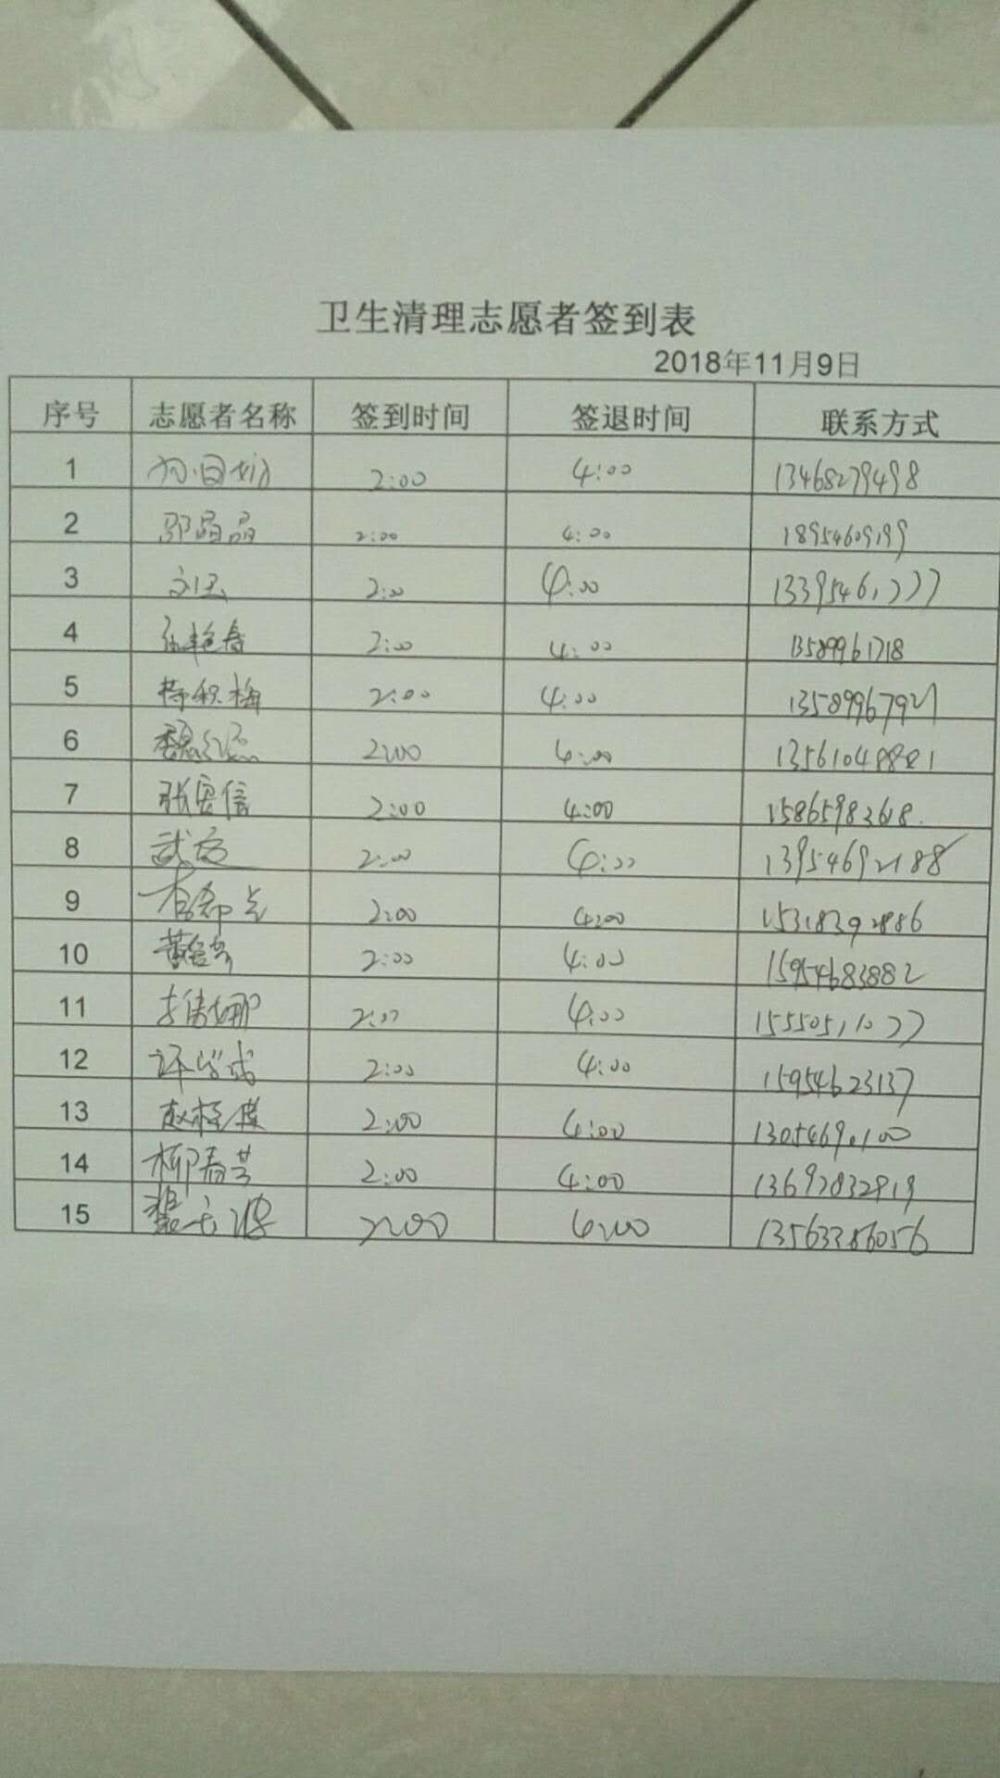 卫生清理志愿者签到表
2018年11月9日
序号 志愿者名称 签到时间 签退时间 联系方式
1 2:00 4:00 13468279498
2 郭晶晶 2:00 4:00 18954609199
3 文玉 2:00 4:00 13395461777
4 2:00 4:00 13589961718
5 2:00 4:00 13589967921
6 2:00 4:00 13561048881
7 张安信 2:00 4:00 15865982618
8 2:00 4:00 13954692188
9 2:00 4:00 15318392886
10 2:00 4:00 15954683882
11 李倩娜 2:00 4:00 15550511077
12 2:00 4:00 15954623137
13 2:00 4:00 13054690100
14 柳春芳 2:00 4:00 13692832919
15 2:00 4:00 13563386056